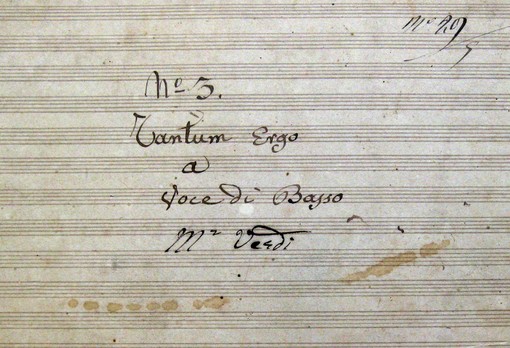 Mo 29
No 3.
Tantum Ergo
a
Voce di Basso
Mr Verdi